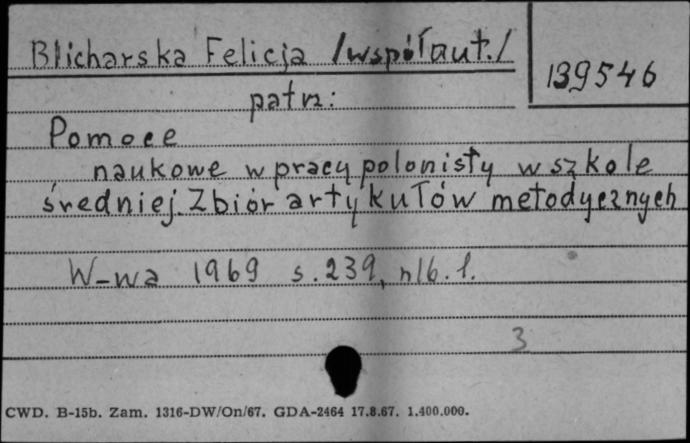 Blicharska Felicja /współaut./
139546
patrz:
Pomoce
naukowe w pracy polonisty w szkole
średniej. Zbiór artykułów metodycznych
W-wa 1969 s. 239, nlb. 1.
3
CWD. B-15b. Zam. 1316-DW/On/67. GDA-2464 17.8.67. 1.400.000.